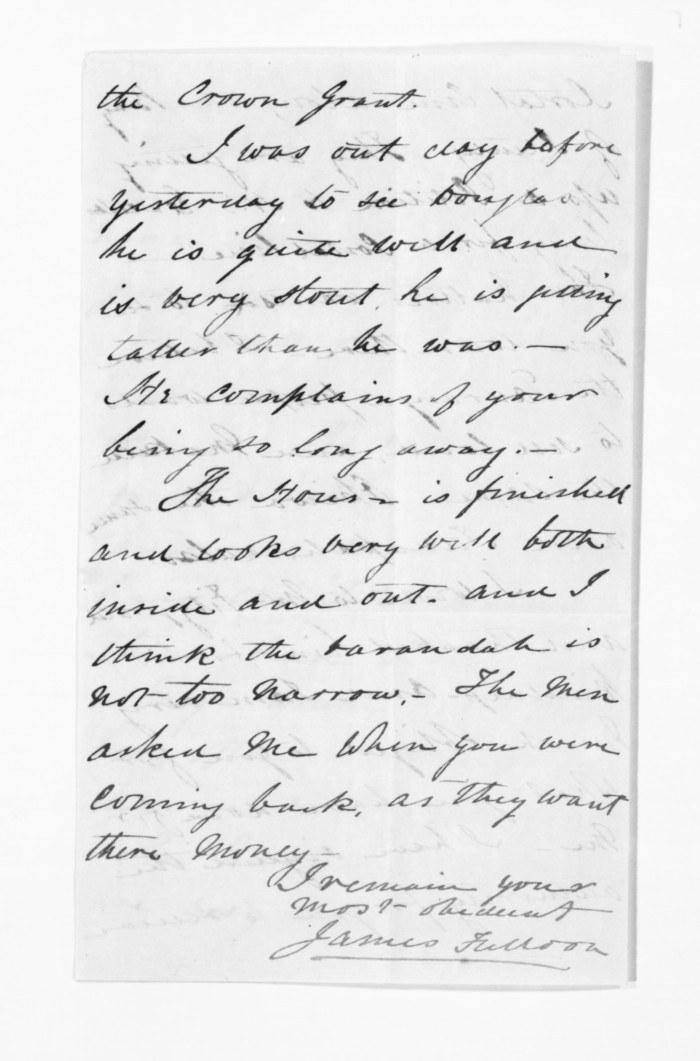 the Crown Grant.
I was out day before
yesterday to see Douglas
he is quite well and
is very stout. he is getting
taller than he was. —
He complains of your
being so long away. —
The House is finished
and looks very well both
inside and out. and I
think the varandah is
not too narrow. — The men
asked me when you were
coming back, as they want
there money —
I remain your
most obedient
James Fulloon